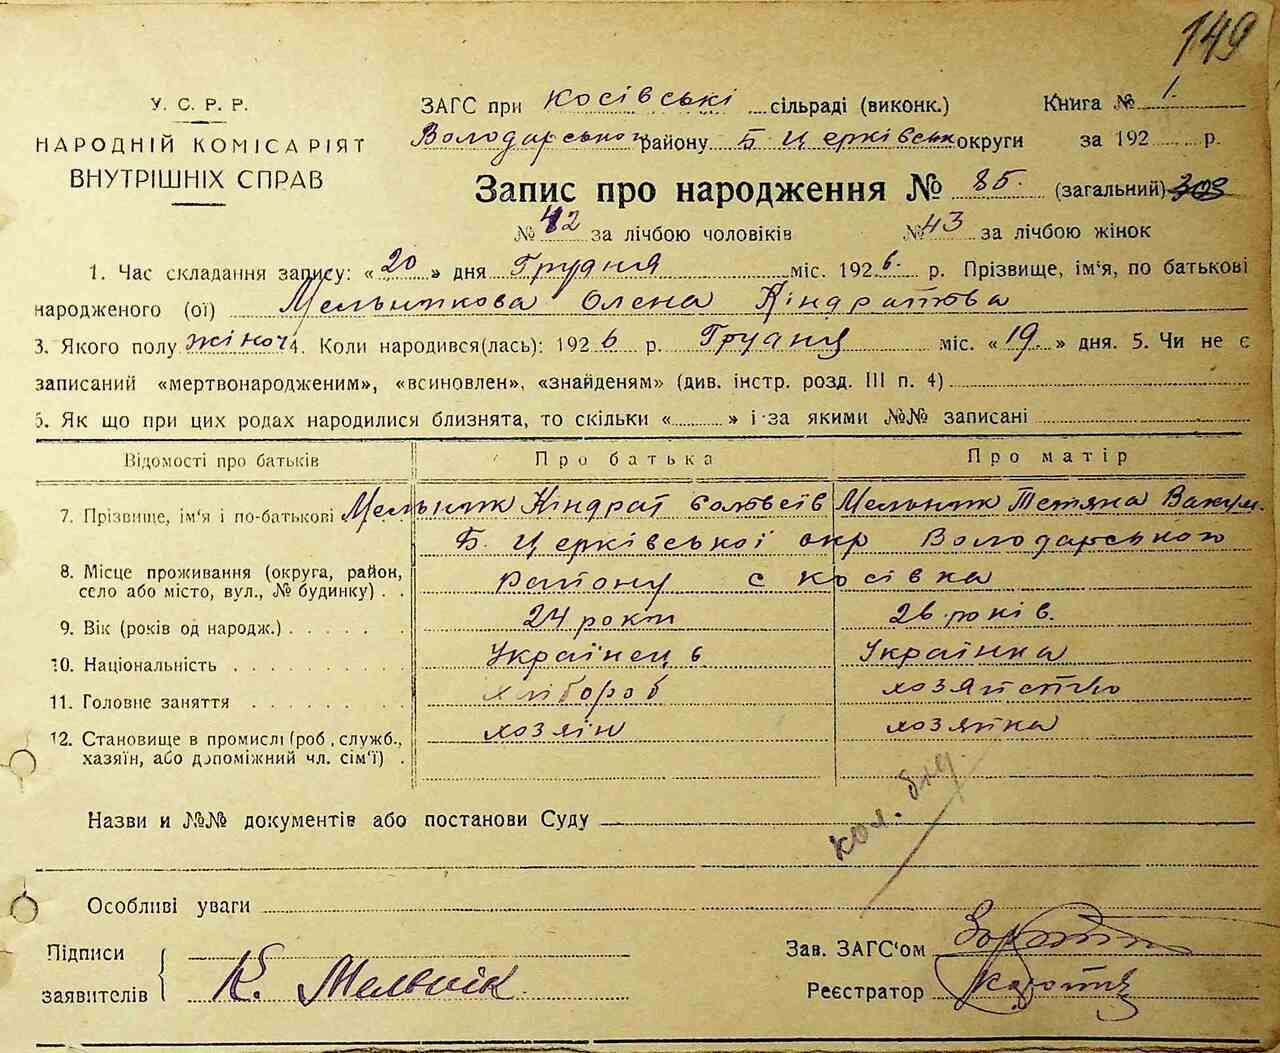 149
У. С. Р. Р.
НАРОДНІЙ КОМІСАРІЯТ
ВНУТРІШНІХ СПРАВ
ЗАГС при Косівські сільраді (виконк.) Книга № 1.
Володарського району Б Церківськ округи за 192 р.
Запис про народження № 85. (загальний) 303
№ 42 за лічбою чоловіків № 43 за лічбою жінок
1. Час складання запису: «20» дня Грудня міс. 1926. р. Прізвище, ім'я, по батькові
народженого (ої) Мельникова Олена Кіндратова
3. Якого полу жіноч 4. Коли народився(лась): 1926 р. Грудня міс. «19.» дня. 5. Чи не є
записаний «мертвонародженим», «всиновлен», «знайденям» (див. інстр. розд. III п. 4)
6. Як що при цих родах народилися близнята, то скільки « » і за якими №№ записані
Відомості про батьків Про батька Про матір
7. Прізвище, ім'я і по-батькові Мельник Кіндрат Мельник Тетяна
Б. Церківської окр Володарського
8. Місце проживання (округа, район, району с Косівка
село або місто, вул., № будинку)
9. Вік (років од народж.) 24 роки 26 років.
10. Національність Українець Українка
11. Головне заняття хлібороб хозяйство
12. Становище в промислі (роб, служб., хозяін хозяйка
хазяїн, або допоміжний чл. сім'ї)
Назви и №№ документів або постанови Суду
кол. бяд.
Особливі уваги
Підписи Зав. ЗАГС'ом
заявителів К. Мельнік Реєстратор